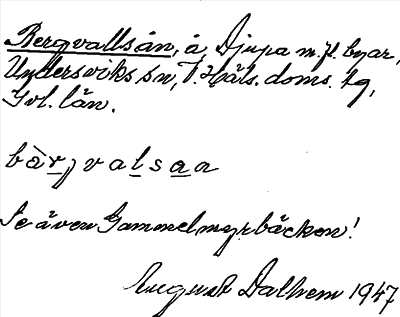 Bergvallsån, å, Djupa m.fl. byar,
Undersviks sn, V. Häls. doms. tg,
Gvl. län.
bàrjvalsaa
Se även Gammelmyrbäcken!
August Dalhem 1947